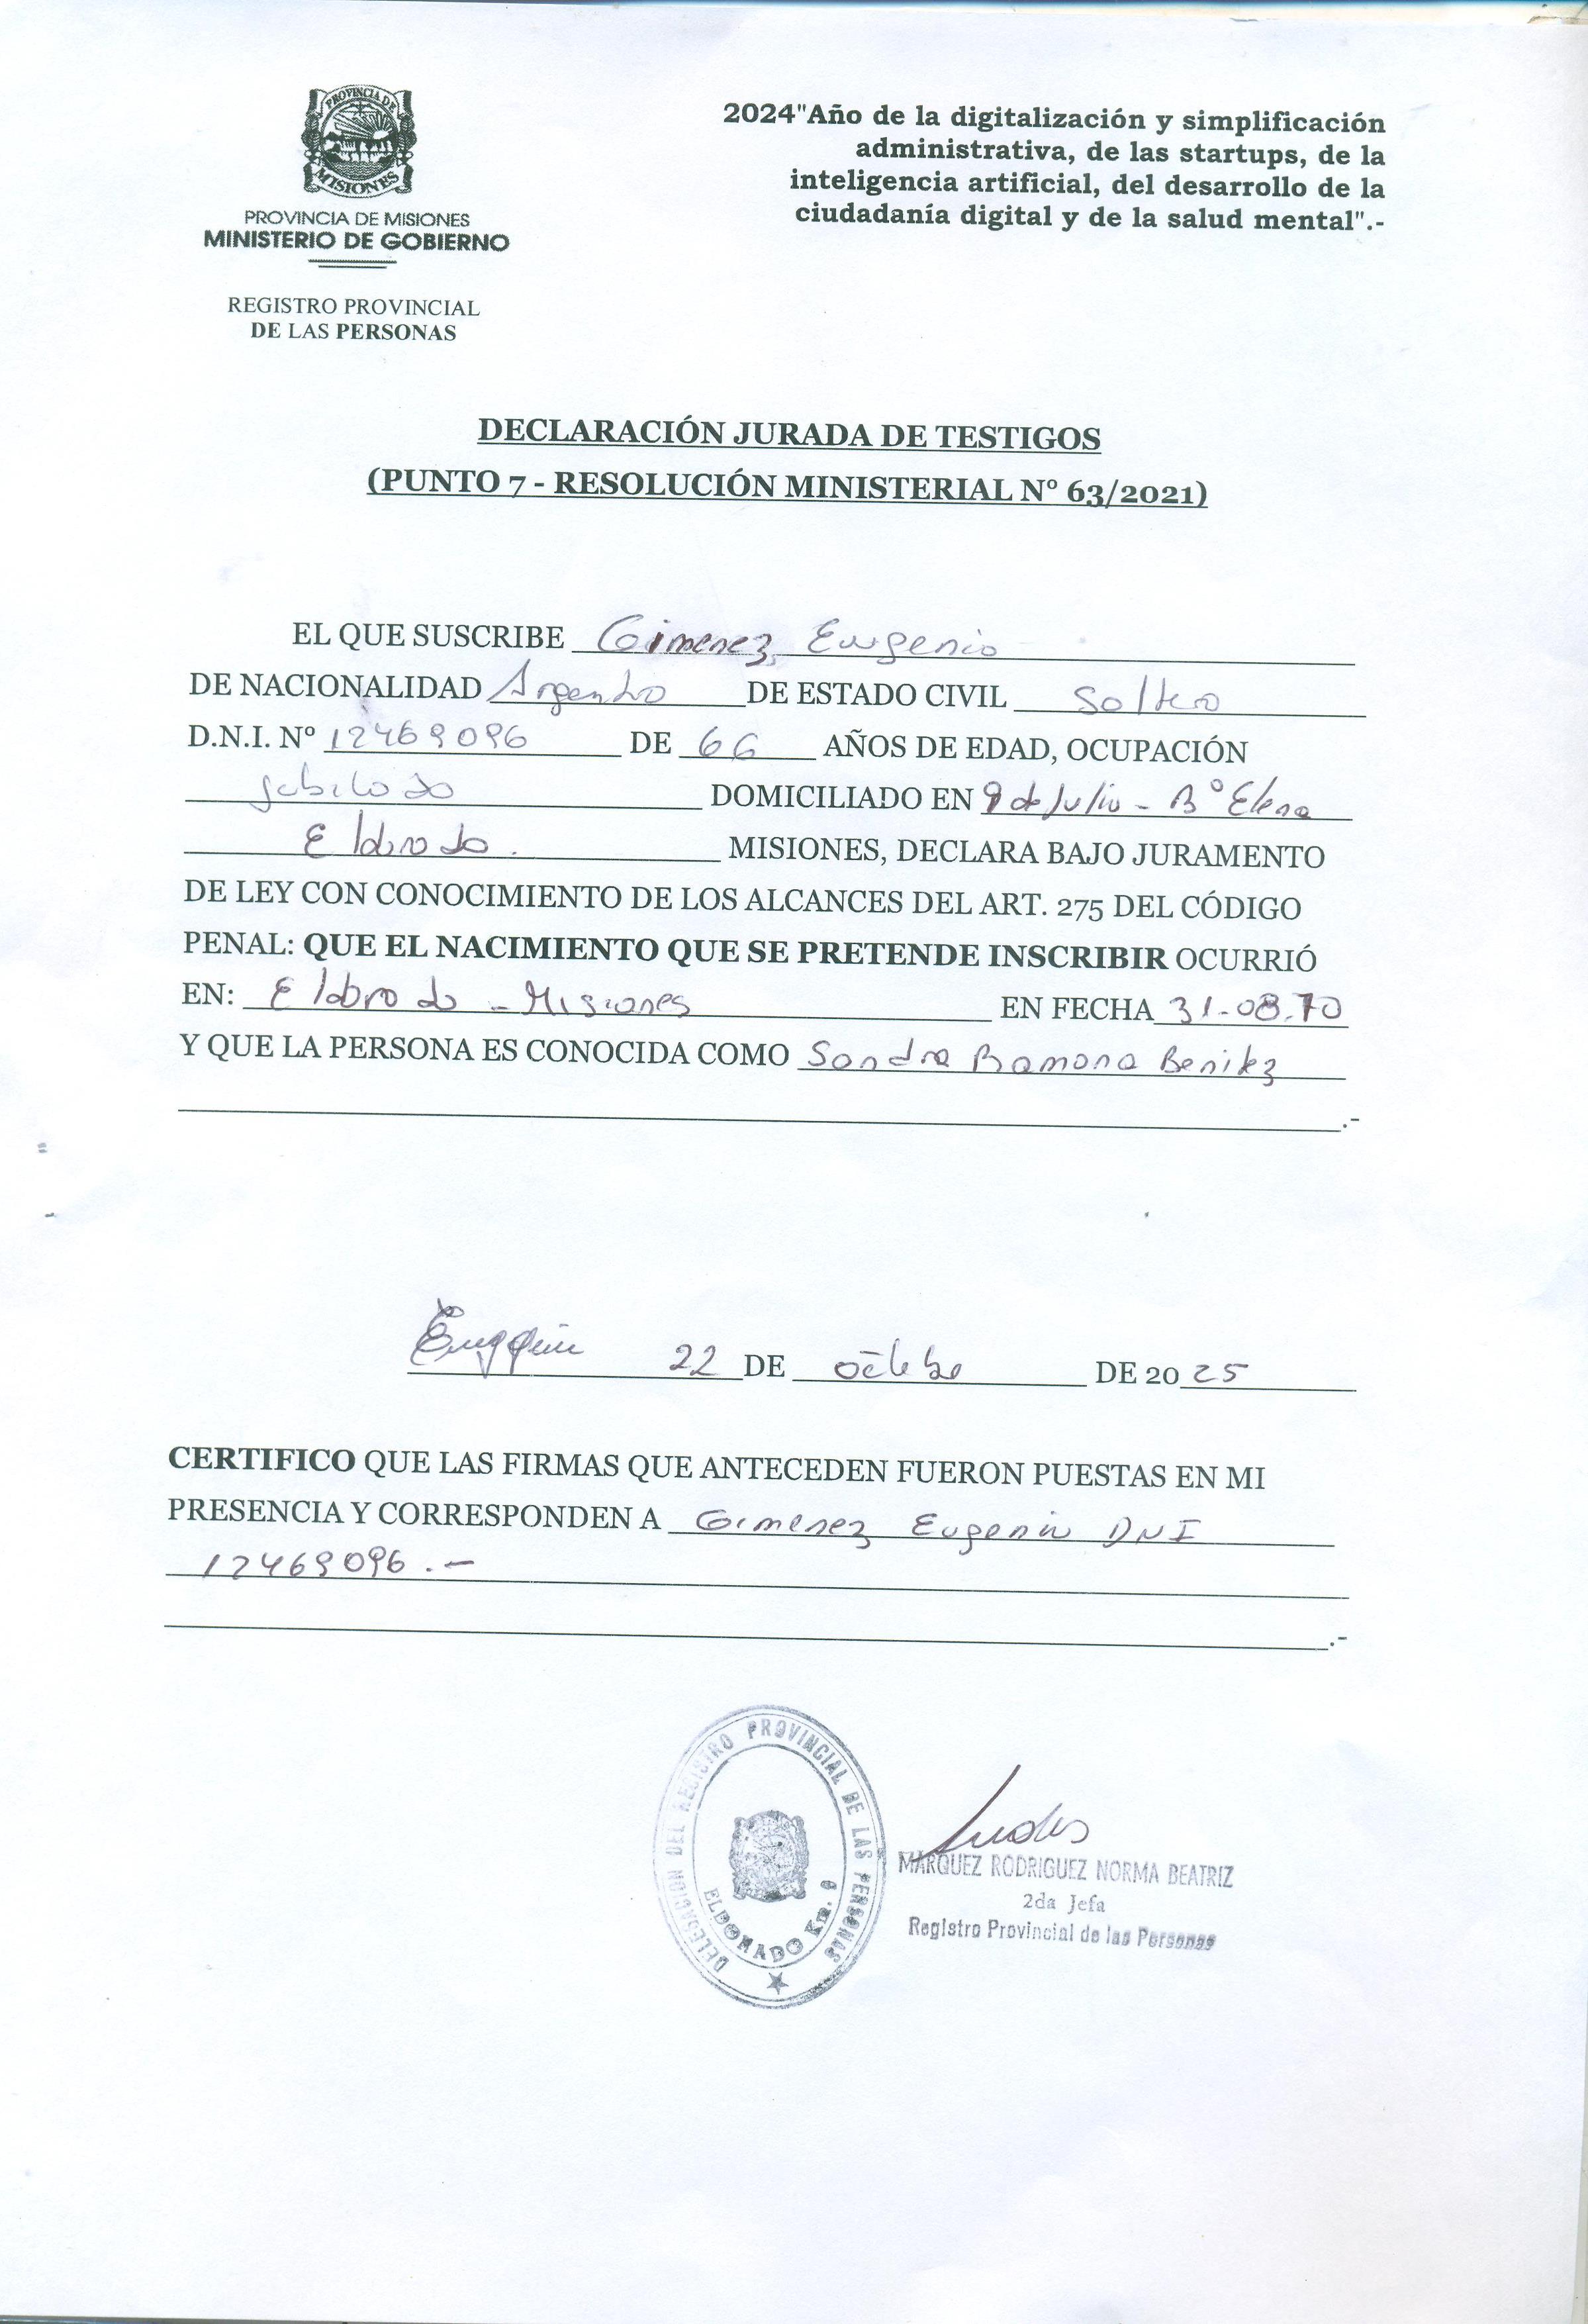 PROVINCIA DE
MISIONES
PROVINCIA DE MISIONES
MINISTERIO DE GOBIERNO
REGISTRO PROVINCIAL
DE LAS PERSONAS
2024"Año de la digitalización y simplificación
administrativa, de las startups, de la
inteligencia artificial, del desarrollo de la
ciudadanía digital y de la salud mental".-
DECLARACIÓN JURADA DE TESTIGOS
(PUNTO 7 - RESOLUCIÓN MINISTERIAL Nº 63/2021)
EL QUE SUSCRIBE Gimenez, Eugenio
DE NACIONALIDAD Argentino DE ESTADO CIVIL Soltero
D.N.I. Nº 12469096 DE 66 AÑOS DE EDAD, OCUPACIÓN
Jubilado DOMICILIADO EN 9 de Julio - Bº Elena
Eldorado. MISIONES, DECLARA BAJO JURAMENTO
DE LEY CON CONOCIMIENTO DE LOS ALCANCES DEL ART. 275 DEL CÓDIGO
PENAL: QUE EL NACIMIENTO QUE SE PRETENDE INSCRIBIR OCURRIÓ
EN: Eldorado - Misiones EN FECHA 31-08.70
Y QUE LA PERSONA ES CONOCIDA COMO Sandra Ramona Benitez
.-
22 DE octubre DE 2025
CERTIFICO QUE LAS FIRMAS QUE ANTECEDEN FUERON PUESTAS EN MI
PRESENCIA Y CORRESPONDEN A Gimenez Eugenio DNI
12469096.-
.-
DELEGACION DEL REGISTRO PROVINCIAL DE LAS PERSONAS
ELDORADO Km. 9
MARQUEZ RODRIGUEZ NORMA BEATRIZ
2da Jefa
Registro Provincial de las Personas